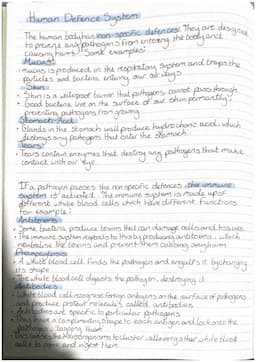 Human Defence System
The human body has non-specific defences. They are designed
to prevent any pathogens from entering the body and
causing harm. Some examples:
Mucus:
• mucus is produced in the respiratory system and traps the
particles and bacteria entering our airways
Skin:
• Skin is a waterproof barrier that pathogens cannot pass through
• Good bacteria live on the surface of our skin permanently,
preventing pathogens from growing
Stomach Acid:
• Glands in the stomach wall produce hydrochloric acid, which
destroys any pathogens that enter the stomach
Tears:
• Tears contain enzymes that destroy any pathogens that make
contact with our eye
If a pathogen passes the non specific defences the immune
system is activated. The immune system is made up of
different white blood cells which have different functions
for example:
Antitoxins
• Some bacteria produce toxins that can damage cells and tissues
• The immune system responds to this by producing antitoxins, which
neutralise the toxins and prevent them causing any harm
Phagocytosis
• A white blood cell finds the pathogen and engulfs it by changing
its shape
• The white blood cell digests the pathogen, destroying it
Antibodies
• White blood cell recognises foreign antigens on the surface of pathogens
and produce protein molecules called antibodies
• Antibodies are specific to particular pathogens
• They have a complimentary shape to each antigen and lock onto the
pathogens, tagging them
• This causes the microorganisms to cluster, allowing other white blood
cells to come and ingest them